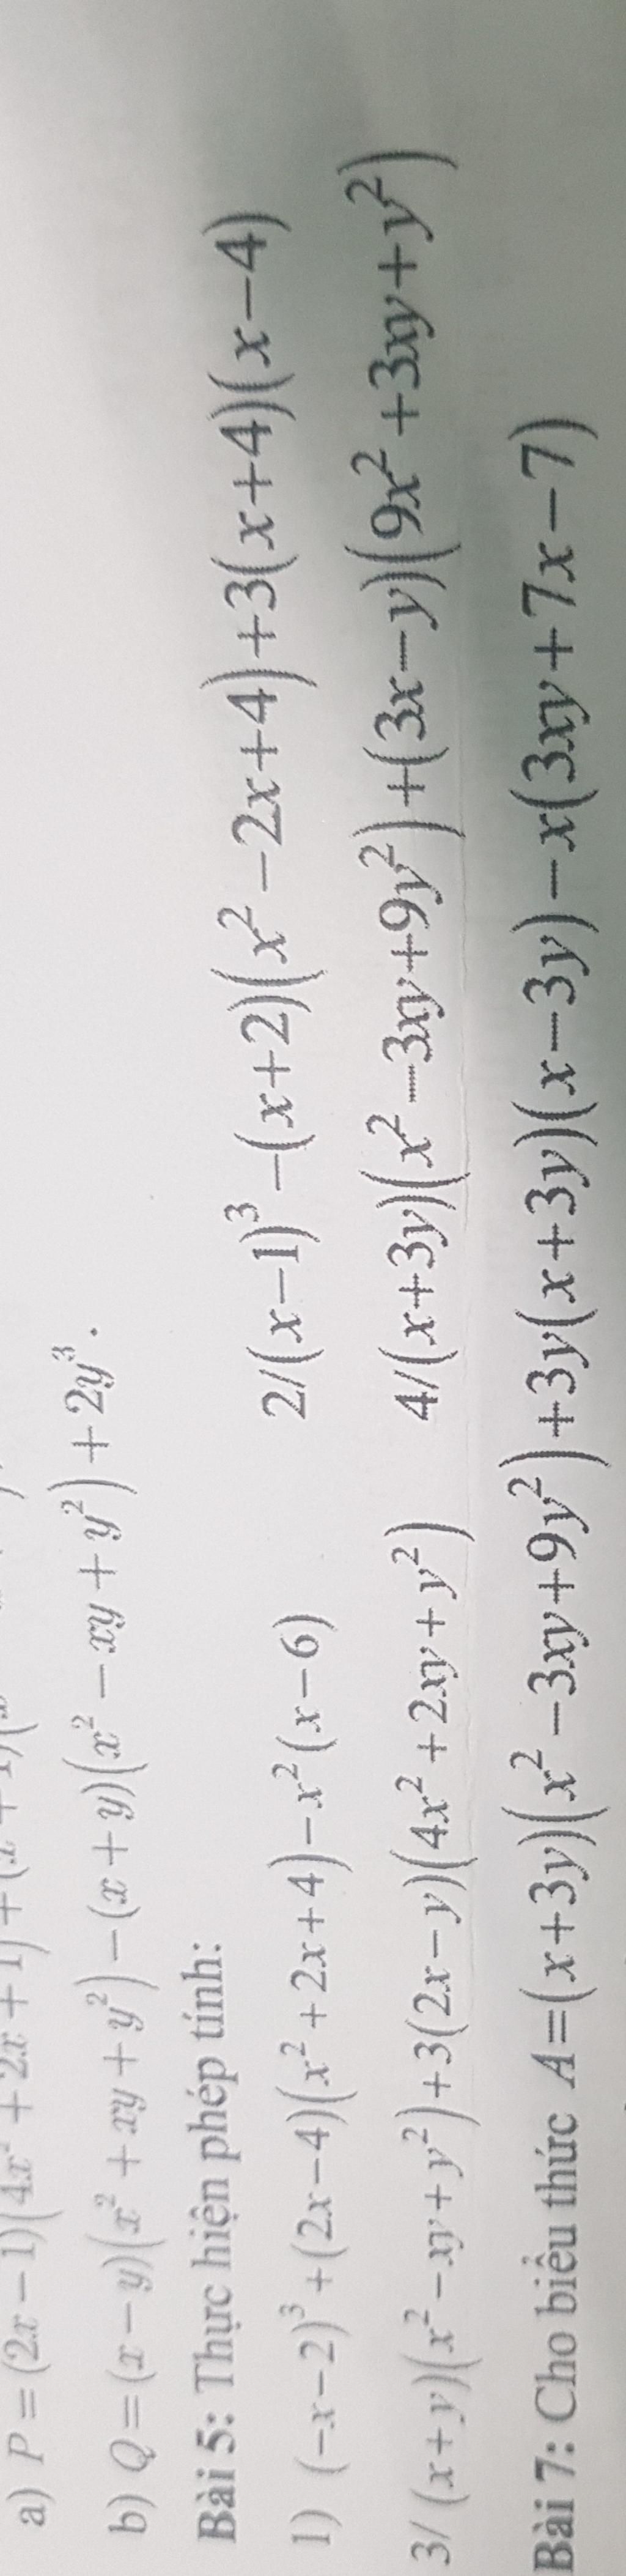 a) P = (2x − 1)(4x² + 2x + 1) + (x + 1)(x
b) Q = (x − y)(x² + xy + y²) − (x + y)(x² − xy + y²) + 2y³.
Bài 5: Thực hiện phép tính:
1) (−x−2)³ + (2x−4)(x² + 2x + 4) − x² (x−6) 2/(x−1)³ −(x+2)(x² −2x+4)+3(x+4)(x−4)
3/ (x+y)(x² − xy + y²)+3(2x−y)(4x² +2xy+y²) 4/(x+3y)(x² −3xy+9y²)+(3x−y)(9x² +3xy+y²)
Bài 7: Cho biểu thức A=(x+3y)(x² −3xy+9y²)+3y(x+3y)(x−3y)−x(3xy+7x−7)